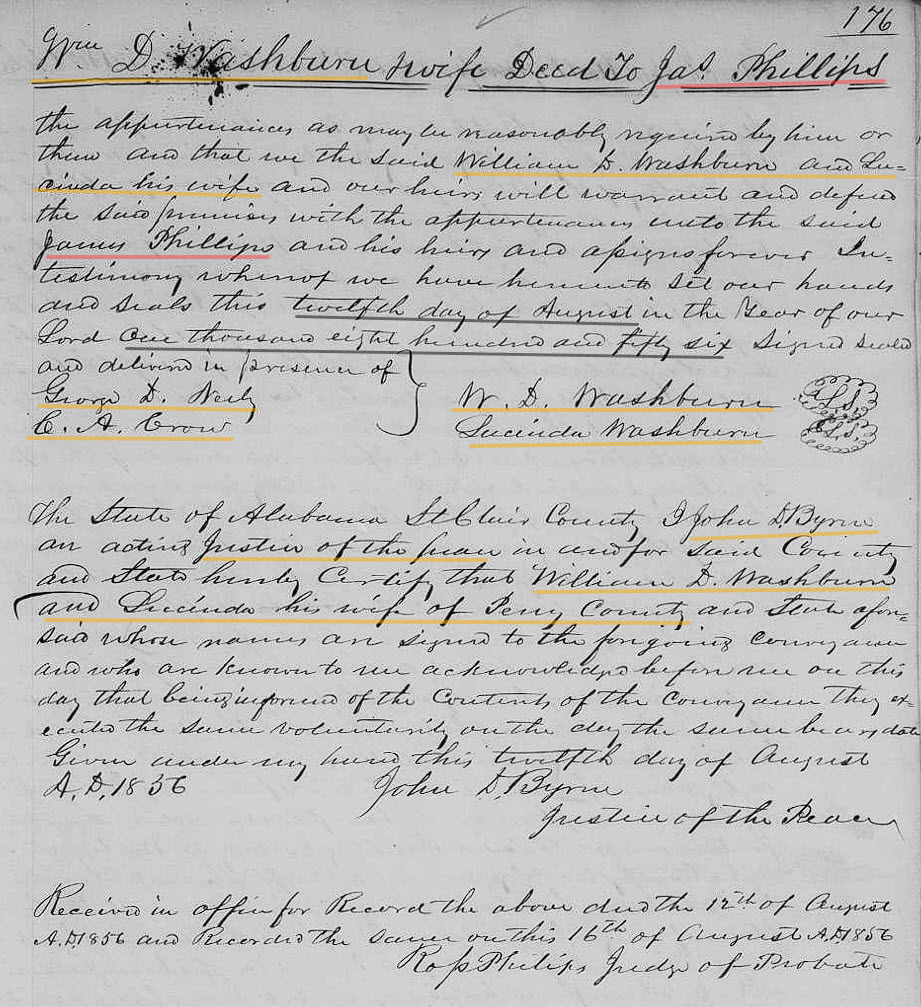 176
Wm D. Washburn & wife Deed To Jas. Phillips
the appurtenances as may be reasonably required by him or
them and that we the said William D. Washburn and Lu=
cinda his wife and our heirs will warrant and defend
the said premises with the appurtenances unto the said
James Phillips and his heirs and assigns forever In=
testimony whereof we have hereunto set our hands
and seals this twelfth day of August in the Year of our
Lord One thousand eight hundred and fifty six Signed sealed
and delivered in presence of
George D. Neily W. D. Washburn L.S.
C. A. Crow Lucinda Washburn L.S.
The State of Alabama St Clair County I John D. Byrne
an acting Justice of the peace in and for said County
and State hereby Certify that William D. Washburn
and Lucinda his wife of Perry County and State afore=
said whose names are signed to the foregoing Conveyance
and who are known to me acknowledged before me on this
day that being informed of the Contents of the Conveyance they ex
ecuted the same voluntarily on the day the same bears date
Given under my hand this twelfth day of August
A.D. 1856 John D. Byrne
Justice of the Peace
Received in office for Record the above deed the 12th of August
A.D. 1856 and Recorded the same on this 16th of August A.D. 1856
Ross Philips Judge of Probate